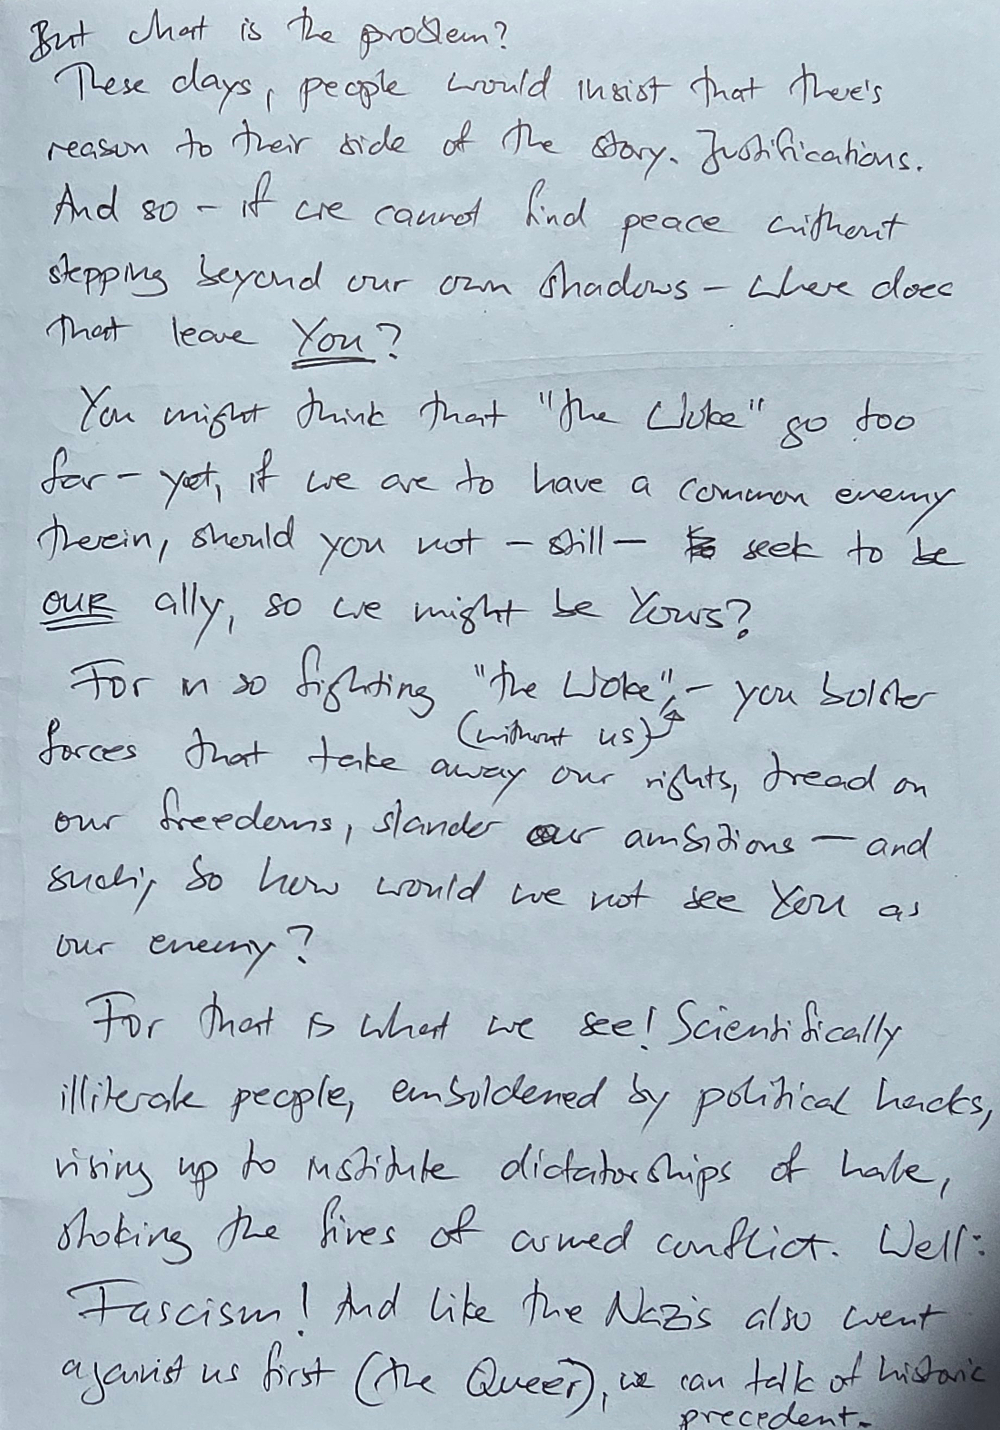 But what is the problem?
These days, people would insist that there's
reason to their side of the story. Justifications.
And so – if we cannot find peace without
stepping beyond our own shadows – where does
that leave You?
You might think that "the Woke" go too
far – yet, if we are to have a common enemy
therein, should you not – still – seek to be
OUR ally, so we might be Yours?
For in so fighting "the Woke", – you bolster
(without us)
forces that take away our rights, tread on
our freedoms, slander our ambitions – and
such; So how would we not see You as
our enemy?
For that is what we see! Scientifically
illiterate people, emboldened by political hacks,
rising up to institute dictatorships of hate,
stoking the fires of armed conflict. Well:
Fascism! And like the Nazis also went
against us first (the Queer), we can talk of historic
precedent.